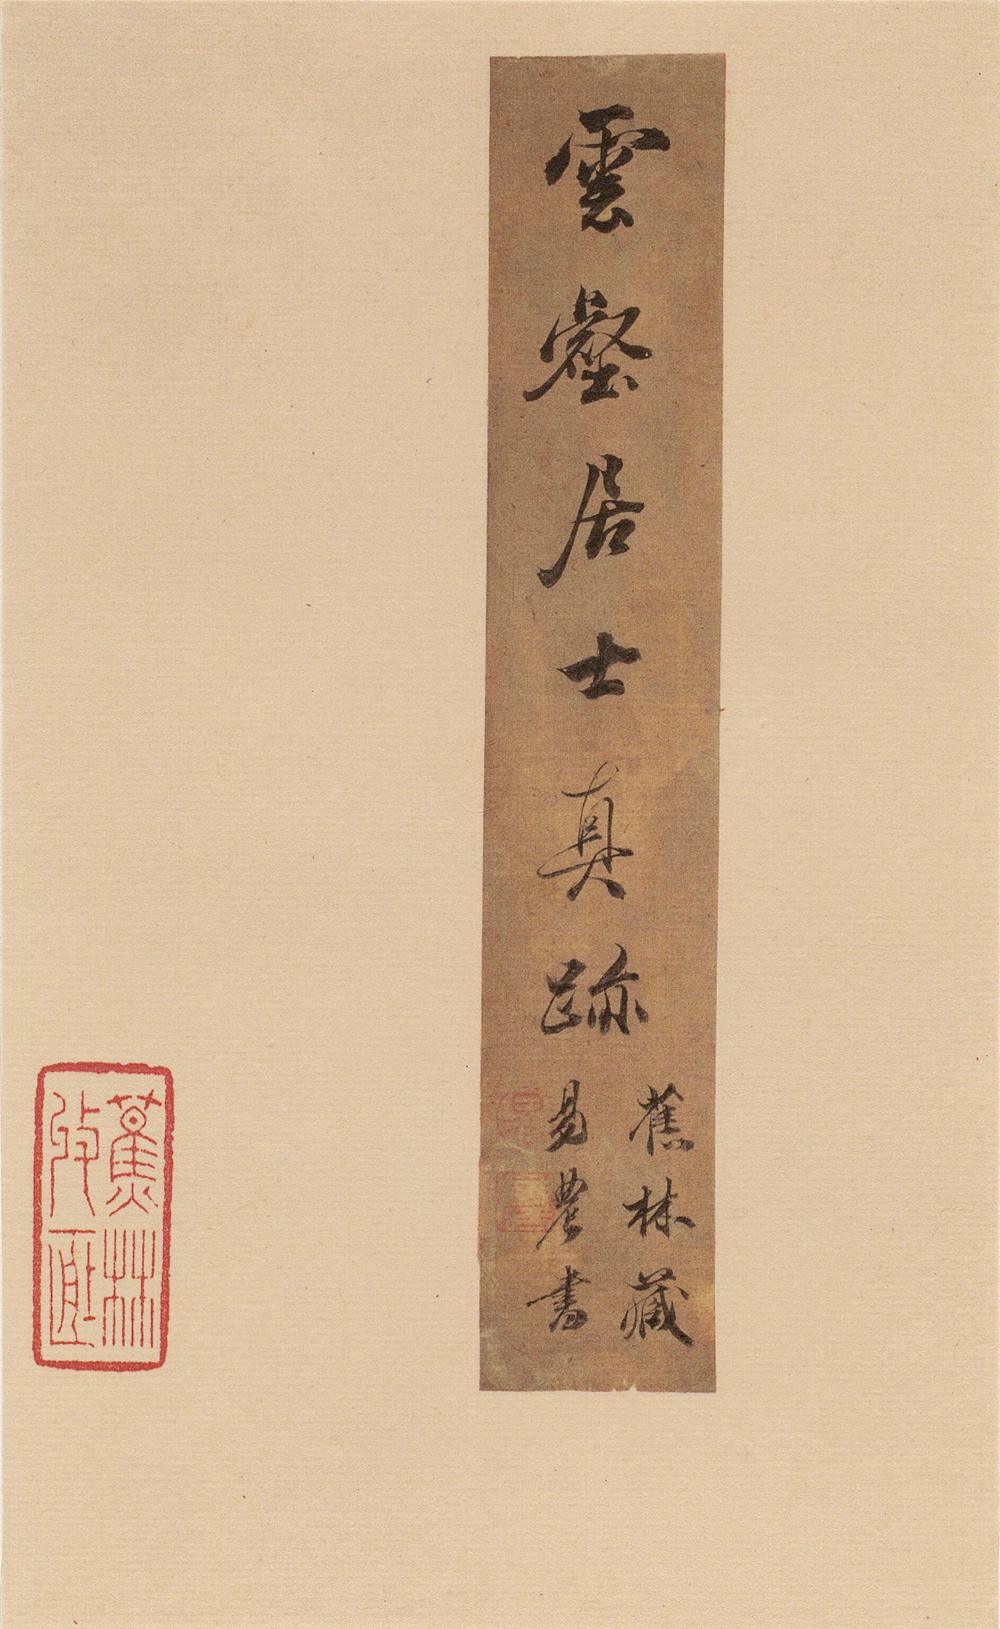 雲壑居士真跡
蕉林藏
易農書
蕉林收藏